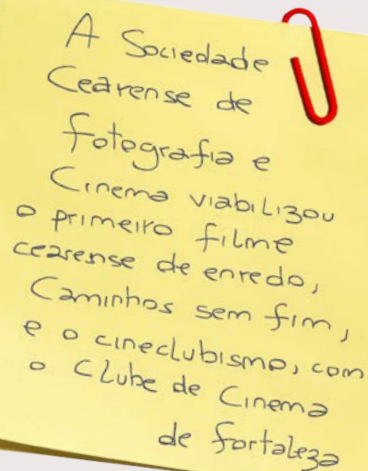 A Sociedade
Cearense de
fotografia e
Cinema viabilizou
o primeiro filme
cearense de enredo,
Caminhos sem fim,
e o cineclubismo, com
o Clube de Cinema
de fortaleza